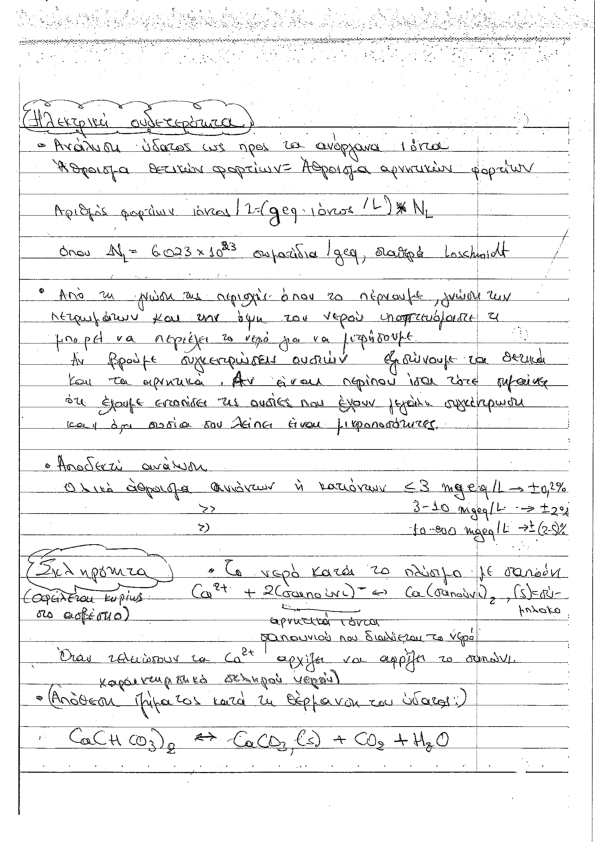 Ηλεκτρική ουδετερότητα
• Ανάλυση ύδατος ως προς τα ανόργανα ιόντα
Άθροισμα θετικών φορτίων = Άθροισμα αρνητικών φορτίων
Αριθμός φορτίων ιόντος / L = (geq. ιόντος / L) * N_L
όπου N_L = 6023 x 10²³ σωματίδια / geq, σταθερά Loschmidt
• Από τη γνώση της περιοχής όπου το πέρνουμε, γνώση των
πετρωμάτων και την όψη του νερού υποπτευόμαστε τι
μπορεί να περιέχει το νερό για να μετρήσουμε.
Αν βρούμε συγκεντρώσεις ουσιών εξισώνουμε τα θετικά
και τα αρνητικά. Αν είναι περίπου ίσα τότε σημαίνει
ότι έχουμε εντοπίσει τις ουσίες που έχουν μεγάλη συγκέντρωση
και όποια ουσία που λείπει είναι μικροποσότητες.
• Αποδεκτή ανάλυση
Ολικό άθροισμα ανιόντων ή κατιόντων ≤ 3 mgeq/L → ±0,2%
>> 3-10 mgeq/L → ±2%
>> 10-800 mgeq/L → ±(2-5)%
Σκληρότητα • Το νερό κατά το πλύσιμο με σαπούνι
(οφείλεται κυρίως Ca²⁺ + 2(σαπούνι)⁻ ↔ Ca(σαπούνι)₂, (s)=σύ-
στο ασβέστιο) μπλοκο
αρνητικά ιόντα
σαπουνιού που διαλύεται το νερό
Όταν τελειώσουν τα Ca²⁺ αρχίζει να αφρίζει το σαπούνι.
χαρακτηριστικό σκληρού νερού)
• (Απόθεση ιζήματος κατά τη θέρμανση του ύδατος:)
Ca(HCO₃)₂ ↔ CaCO₃(s) + CO₂ + H₂O